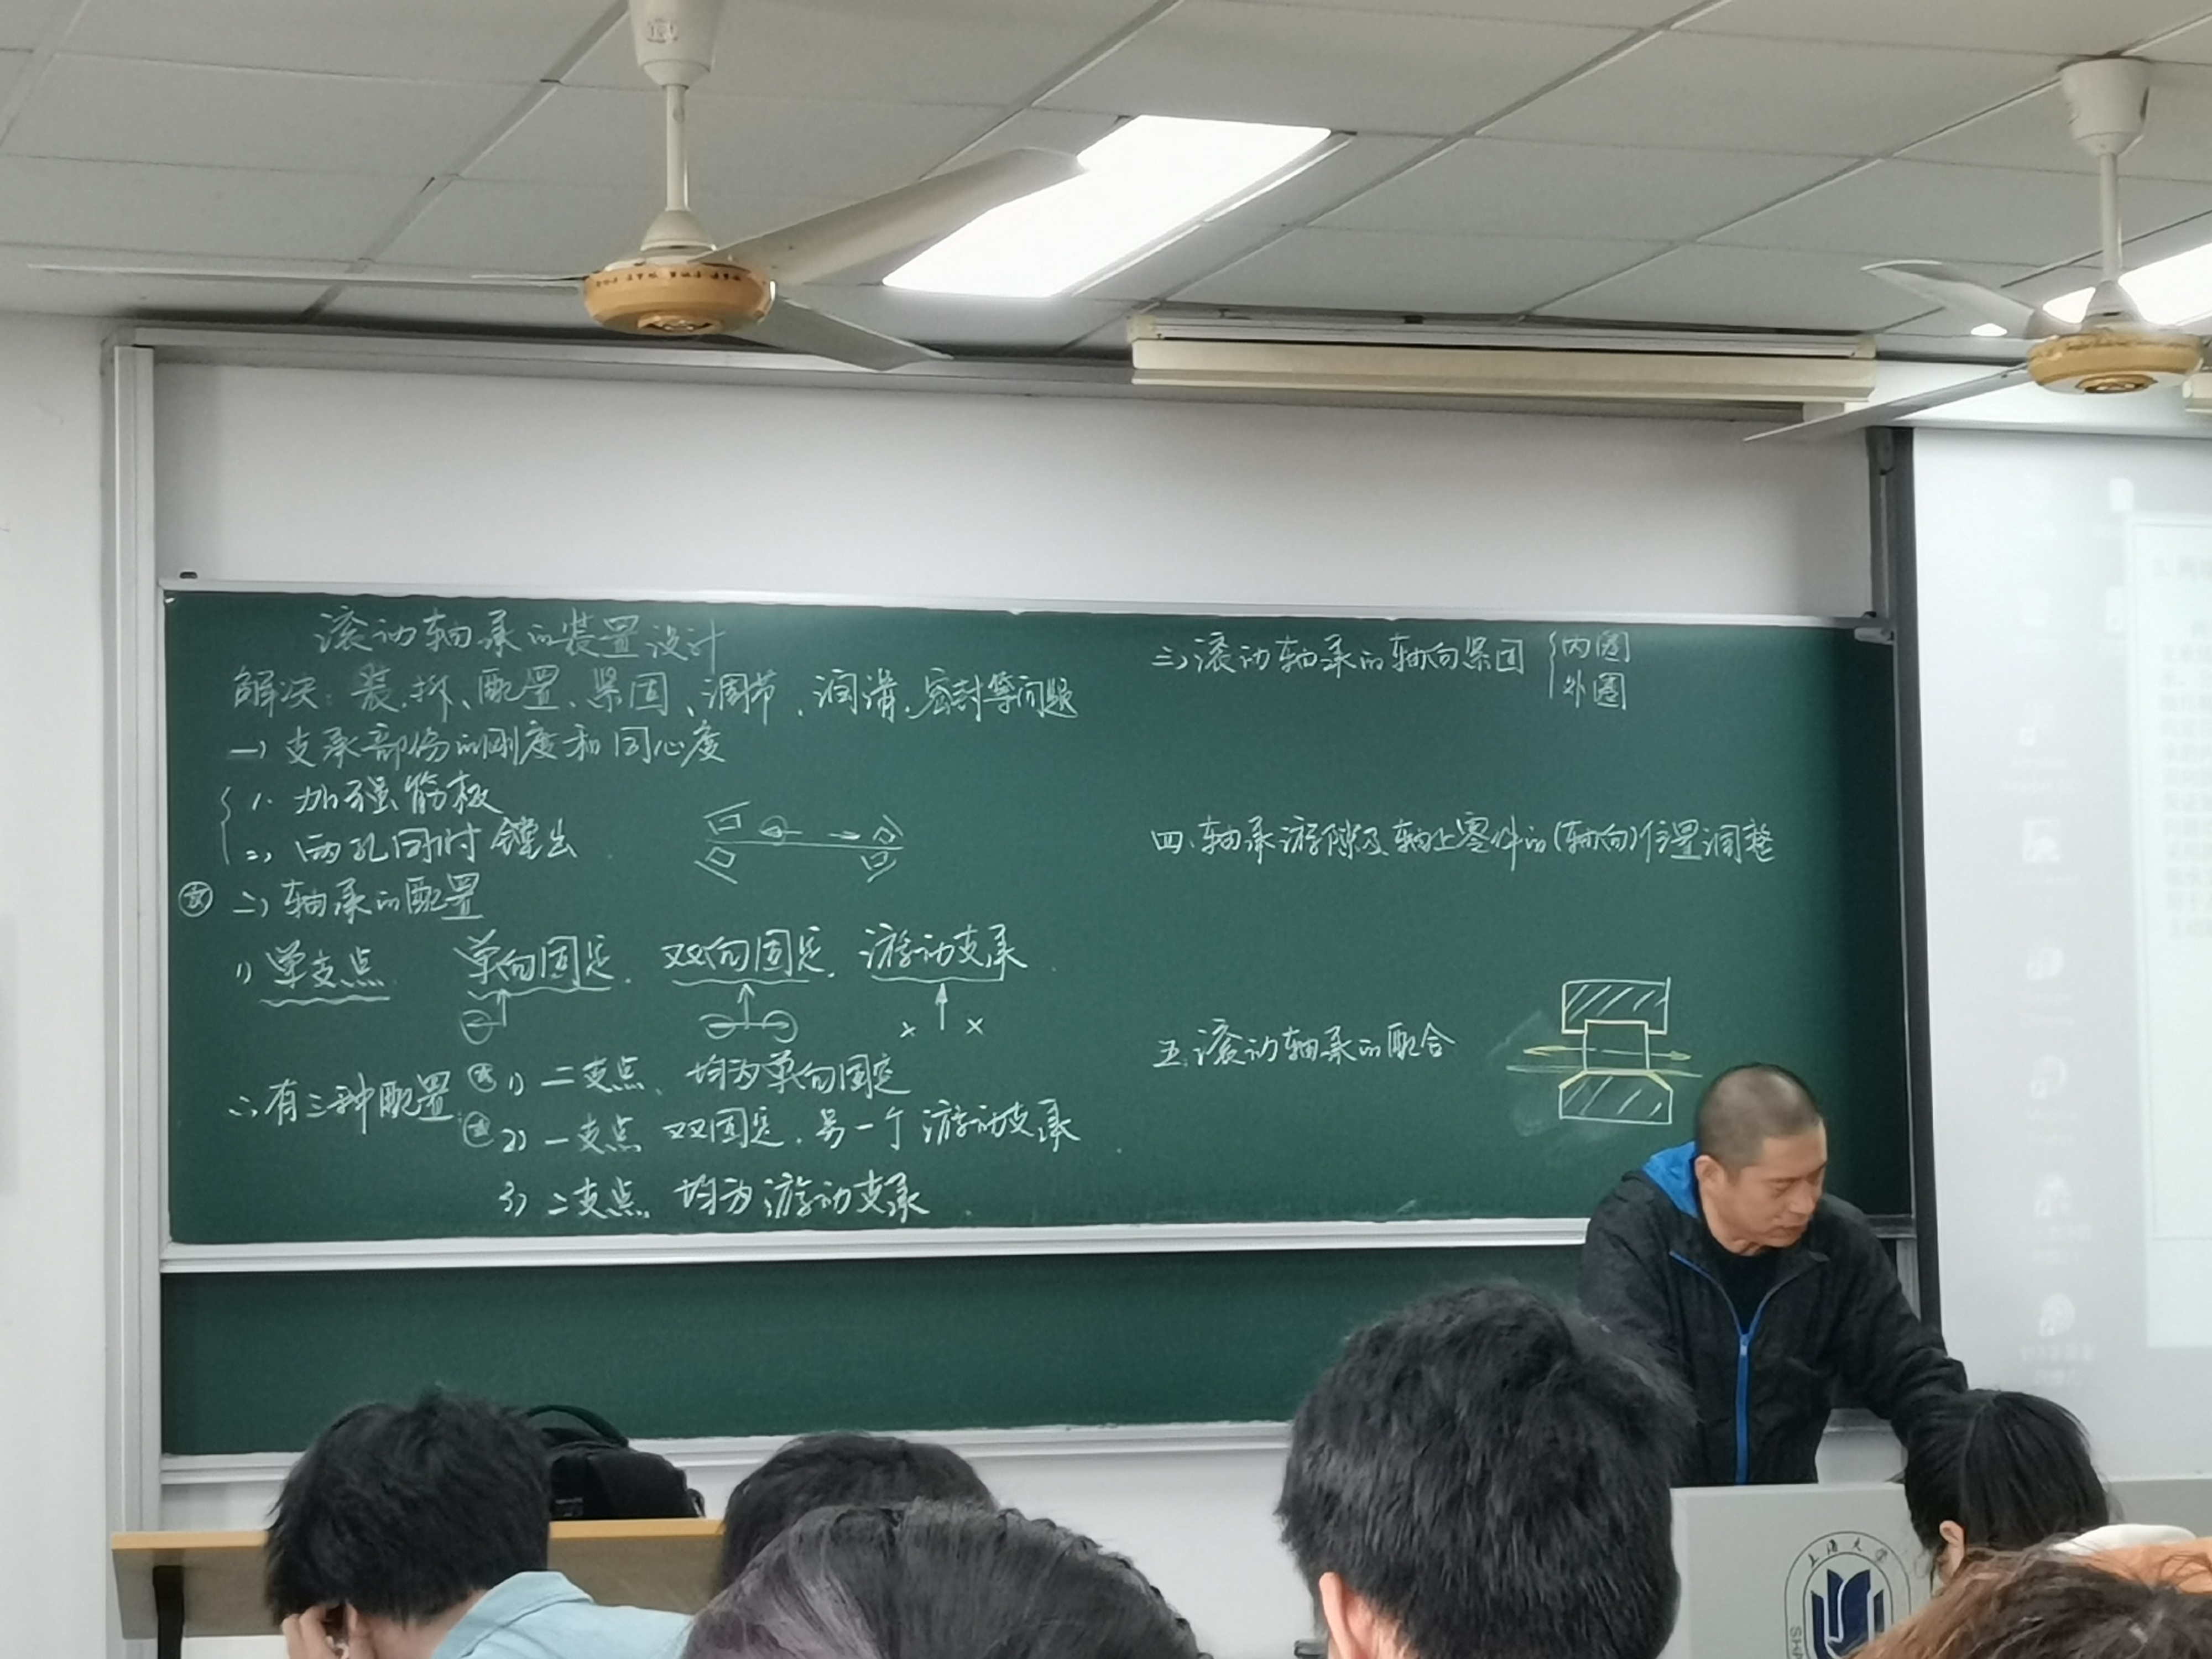 滚动轴承的装置设计
解决：装、拆、配置、紧固、调节、润滑、密封等问题
一）支承部份的刚度和同心度
1. 加强筋板
2. 两孔同时镗出
二）轴承的配置
1）单支点 单向固定、双向固定、游动支承
∴有三种配置：1）二支点、均为单向固定
2）一支点 双固定、另一个游动支承
3）二支点、均为游动支承
三）滚动轴承的轴向紧固 { 内圈
外圈
四、轴承游隙及轴上零件的(轴向)位置调整
五、滚动轴承的配合
上海大学